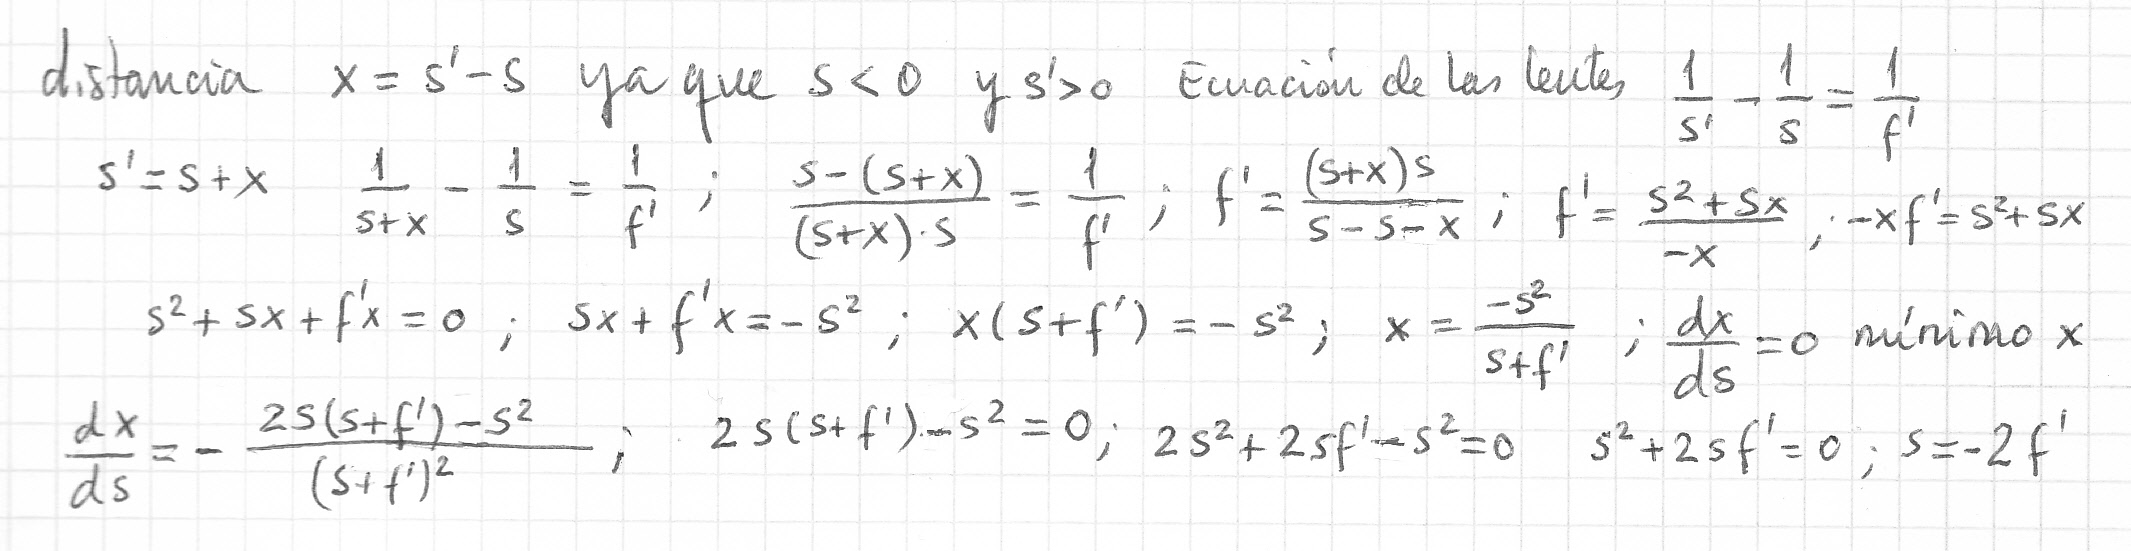 distancia x = s' - s ya que s < 0 y s' > 0 Ecuación de las lentes 1/s' - 1/s = 1/f'
s' = s + x 1/(s+x) - 1/s = 1/f' ; (s-(s+x))/((s+x)·s) = 1/f' ; f' = ((s+x)s)/(s-s-x) ; f' = (s²+sx)/(-x) ; -xf' = s²+sx
s² + sx + f'x = 0 ; sx + f'x = -s² ; x(s+f') = -s² ; x = (-s²)/(s+f') ; dx/ds = 0 mínimo x
dx/ds = - (2s(s+f')-s²)/((s+f')²) ; 2s(s+f')-s² = 0; 2s²+2sf'-s²=0 s²+2sf'=0 ; s=-2f'